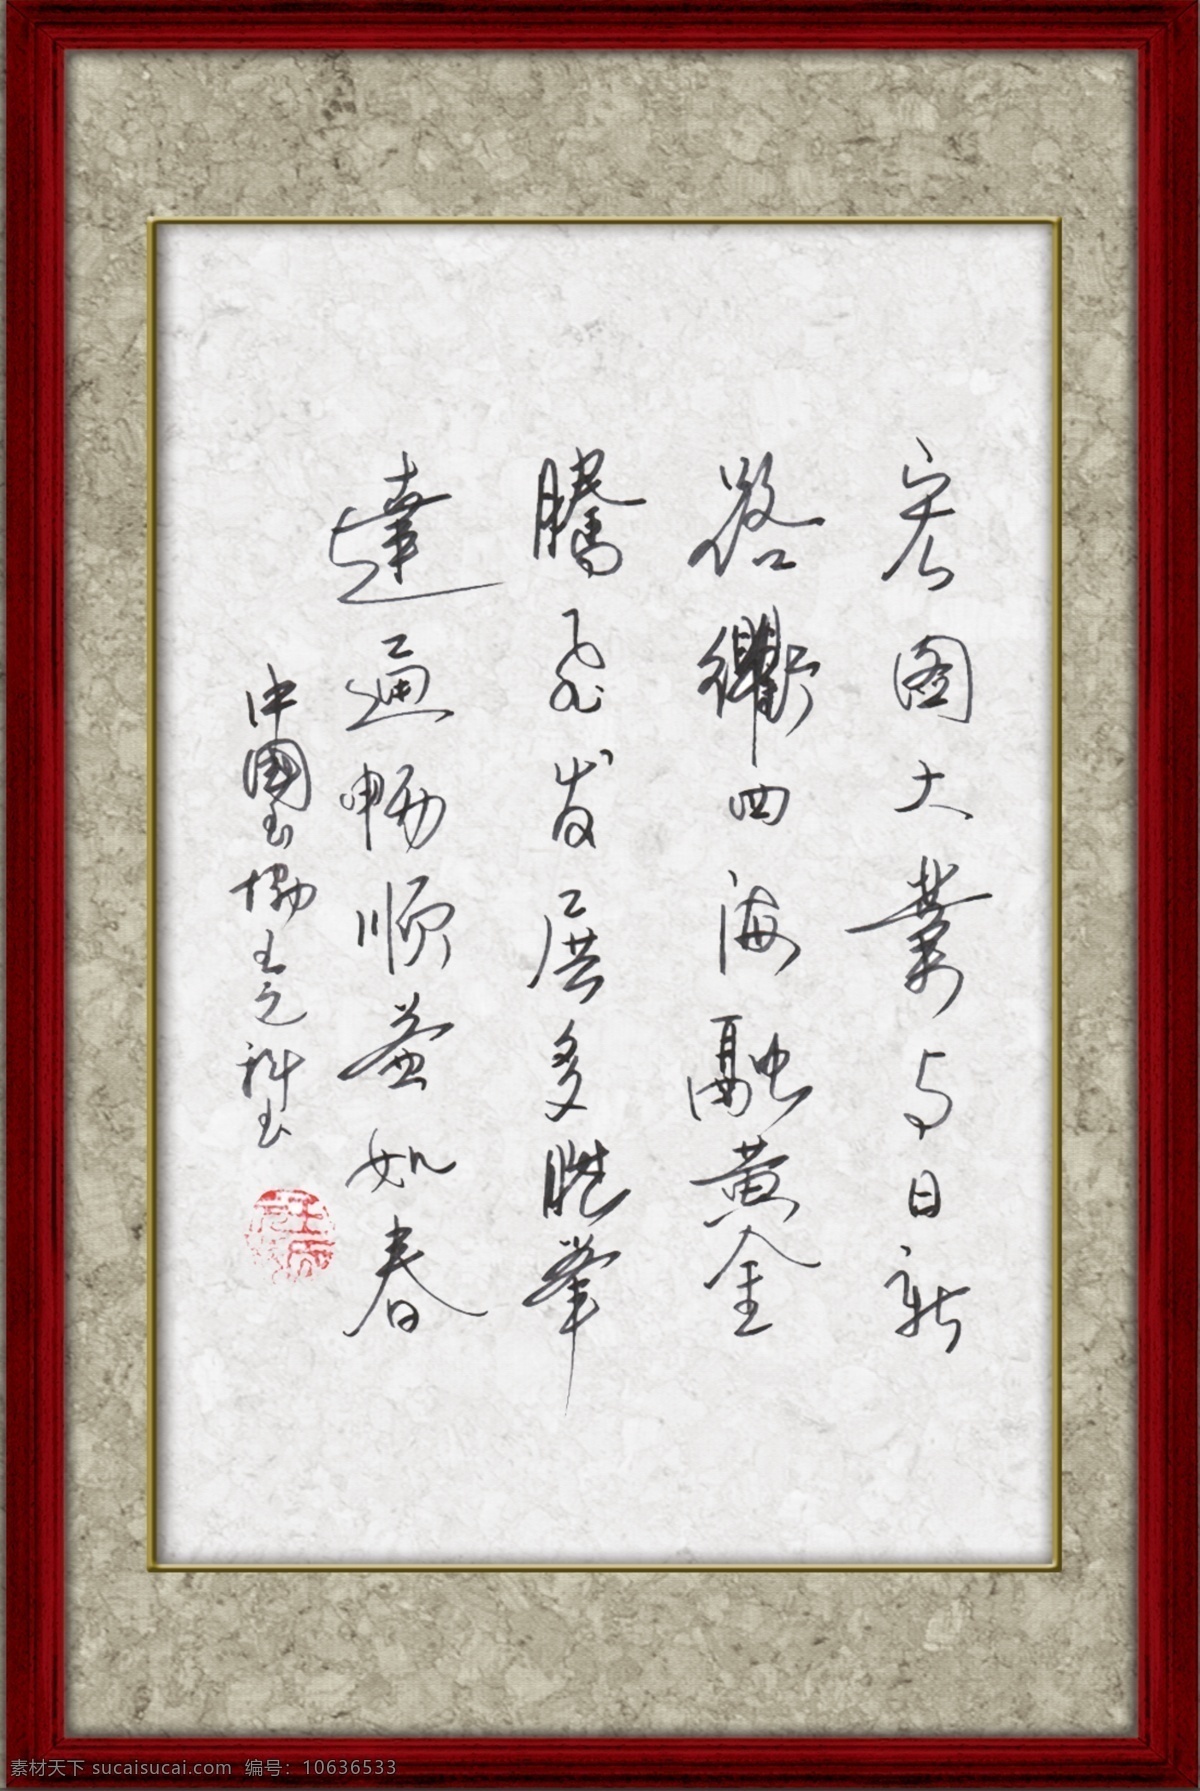 宏图大業与日新
路衢四海融黄金
騰飞发展多胜举
達通畅顺益如春
中國书协王
素材天下 sucaisucai.com 编号：10636533